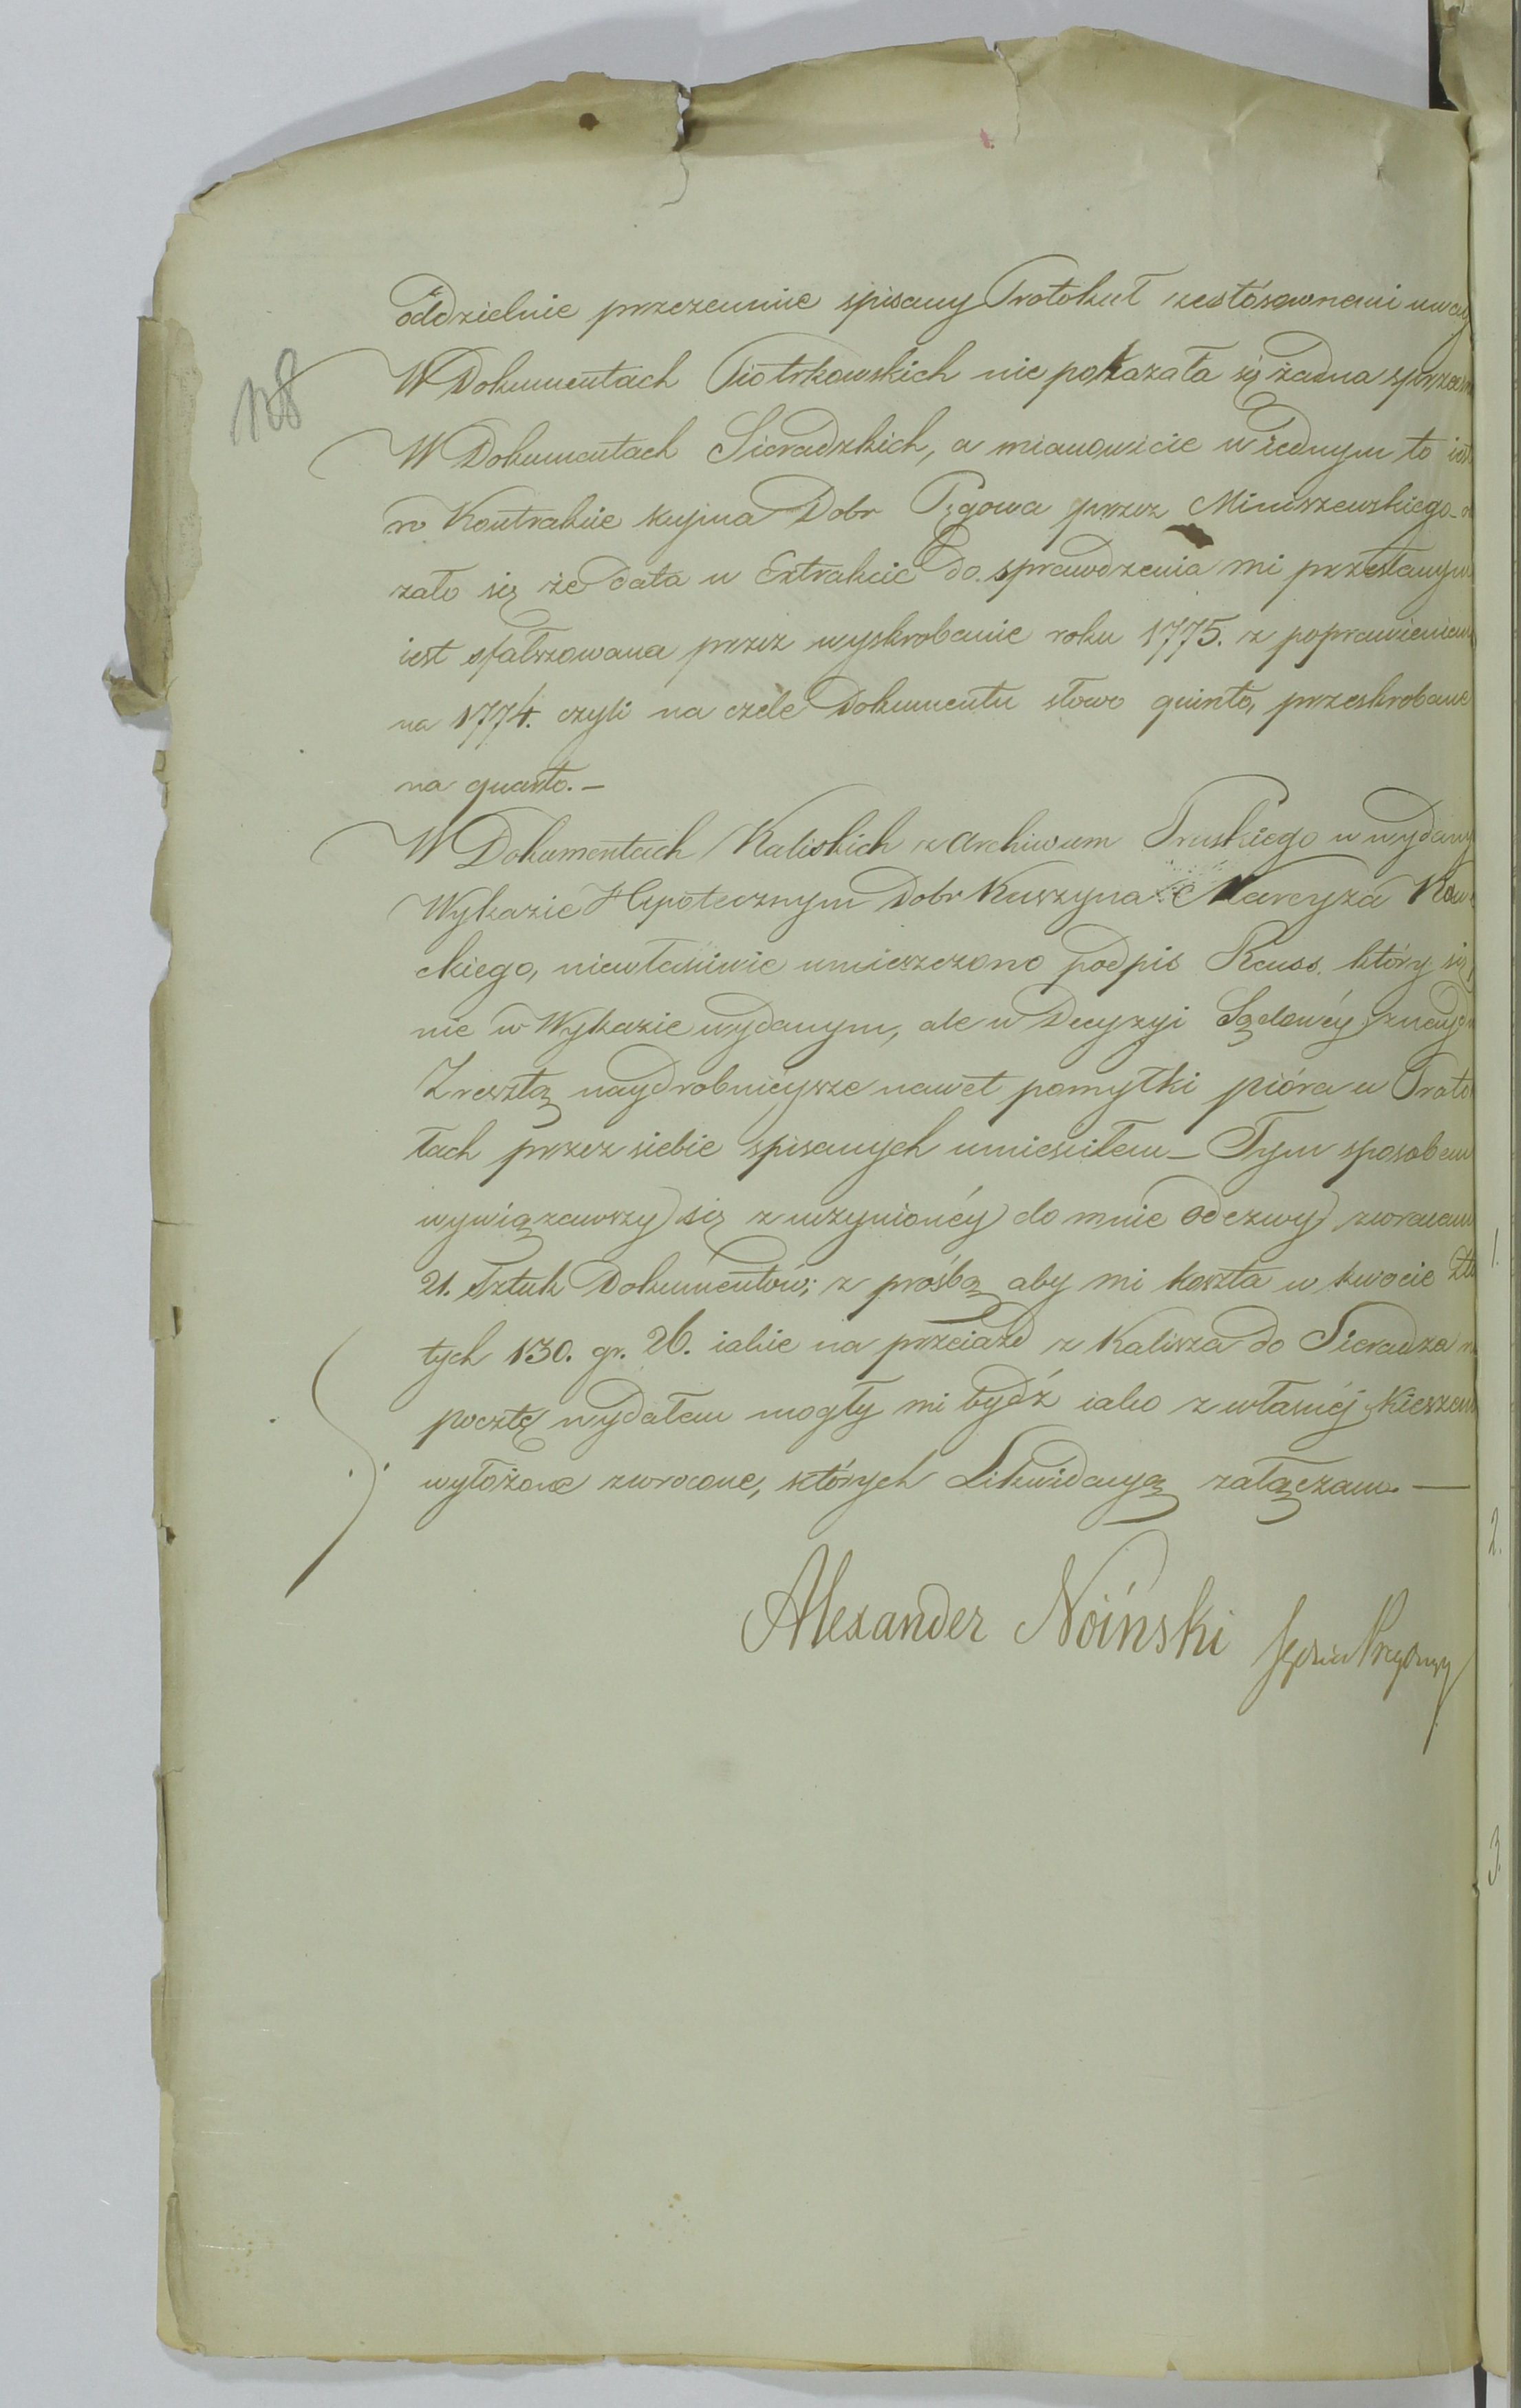 108
oddzielnie przezemnie spisany Protokuł zestósownemi uwag
W Dokumentach Piotrkowskich nie pokazała się żadna sprzecz
W Dokumentach Sieradzkich, a mianowicie w iednym to iest
w Kontrakcie kupna Dobr Pęgowa przez Miniszewskiego
zało się że data w Extrakcie do sprawdzenia mi przesłanym
iest sfałszowana przez wyskrobanie roku 1775. z poprawieniem
na 1774. czyli na czele Dokumentu słowo quinto, przeskrobane
na quarto. –
W Dokumentach Kaliskich z Archiwum Pruskiego w wydany
Wykazie Hypotecznym Dobr Kuszyna Narcyza
ckiego, niewłaściwie umieszczono podpis Reuss. który się
nie w Wykazie wydanym, ale w Decyzyi Sądowéy znayd
Zresztą naydrobnieysze nawet pomyłki pióra w Proto
łach przez siebie spisanych umieściłem – Tym sposobem
wywiązawszy się z uczynionéy do mnie odezwy, zwracam
21. Sztuk Dokumentów; z prośbą aby mi koszta w kwocie Zło
tych 130. gr. 26. iakie na przeiazd z Kalisza do Sieradza
pocztę wydałem mogły mi bydź iako z własnéj kieszeni
wyłożone zwrocone, których Likwidacyą załączam. —
Alexander Noiński Sędzia
1.
2.
3.